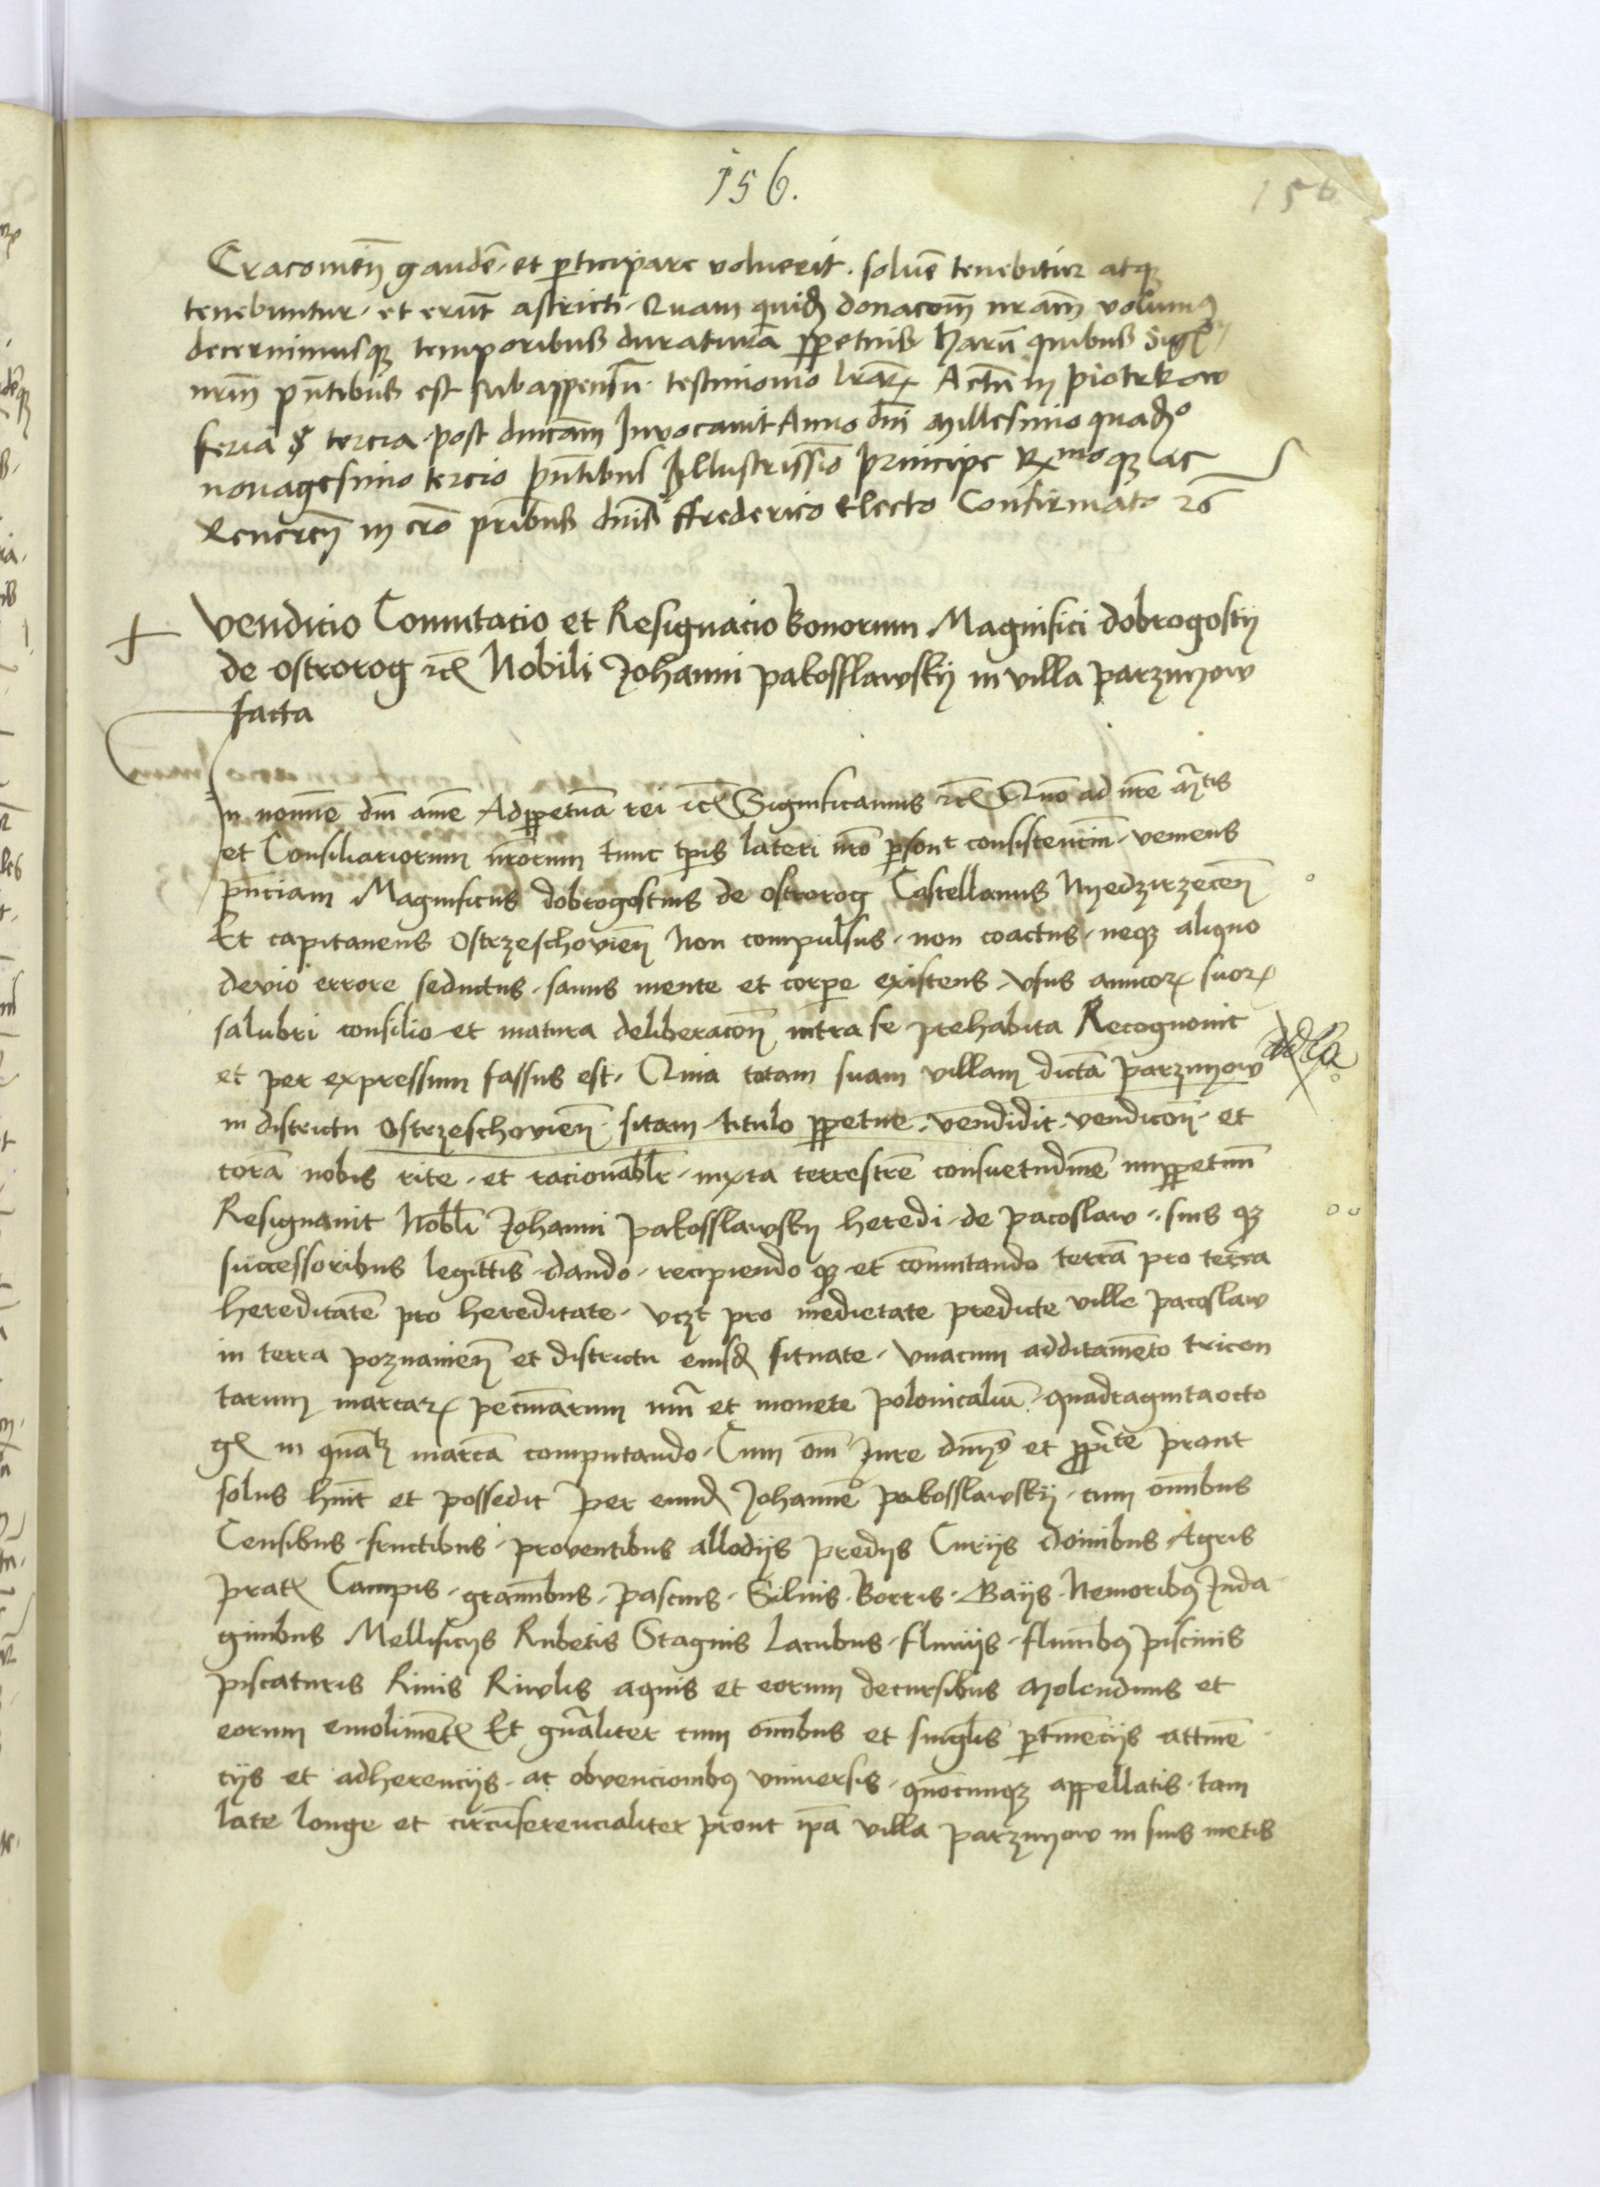 156.
156
Cracovien̄ gaudē et perticipare voluerit soluē tenebitur atqȝ
tenebuntur et erūt astricti Quam quidē donacōm nram̄ volum9
decernimusqȝ temporibus duraturā ꝑpetuis harū quibus Sigl̄
nrm̄ pn̄tibus est subappensū testimonio lr̄aꝝ Actū in piotrkow
feria tercia post dn̄icam Invocavit Anno dn̄i Millesimo quadꝰ
nonagesimo tercio pn̄tibus Illustrissimo principe Rxmoqȝ ac
Reueren̄ in cr̄o pr̄ibus dn̄is ffrederico Electo Confirmato
Venditio Comutacio et Resignacio bonorum Magnifici dobrogostij
de ostrorog etc̄ Nobili Johanni pakosslawskij in villa parzinow
facta
In nomīe dn̄i amē Ad ꝑpetuā rei etc̄ Significamus etc̄ Quō ad nr̄e
et Consiliariorum nr̄orum tunc tp̄is lateri nr̄o consistenciū veniens
pn̄ciam Magnificus dobrogostius de ostrorog Castellanus Myedzirzecen̄
Et capitaneus ostrzeschovien̄ Non compulsus non coactus neqȝ aliquo
devio errore seductus sanus mente et corpe existens vsus amicoꝝ suoꝝ
salubri consilio et matura deliberacōn̄ intra se prehabita Recognovit
et per expressum fassus est Quia totam suam villam dictā parzinow
in districtu Ostrzeschovien̄ sitam titulo ꝑpetue vendidit vendicōn̄ et
corā nobis rite et racionabl̄r iuxta terrestrē consuetudinē inꝑpetuū
Resignavit Nobl̄i Johanni pakosslawskij heredi de pacoslaw suis qȝ
successoribus legittīs dando recipiendo qȝ et cōmutando terrā pro terra
hereditatē pro hereditate vczt pro medietate predicte ville pacoslaw
in terra poznanien̄ et districtu eiusdē situate vnacum additamēto tricen
tarum marcaꝝ pecuniarum nūi et monete polonicaliū quadragintaocto
gͬ in quālꝫ marcā computando Cum om̄i Jure dn̄ij et ꝓp̄rte prout
solus huit et possedit per eund̄ Johannē pakosslawskij cum om̄ibus
Censibus fructibus proventibus allodijs predijs Curijs domibus Agris
prat̄ Campis gramībus pascuis Siluis Borris Gaijs Nemoribus Inda
ginibus Mellificijs Rubetis Stagnis Lacubus fluuijs flumībus piscinis
piscaturis Riuis Riwlis aquis et eorum decursibus Molendinis et
eorum emolimēt̄ Et gn̄aliter cum om̄ibus et singl̄is ꝑtinēcijs attinē
cijs et adherencijs ac obvencionibus vniuersis quocunqȝ appellatis tam
late longe et circūferencialiter prout ip̄a villa parzinow in suis metis